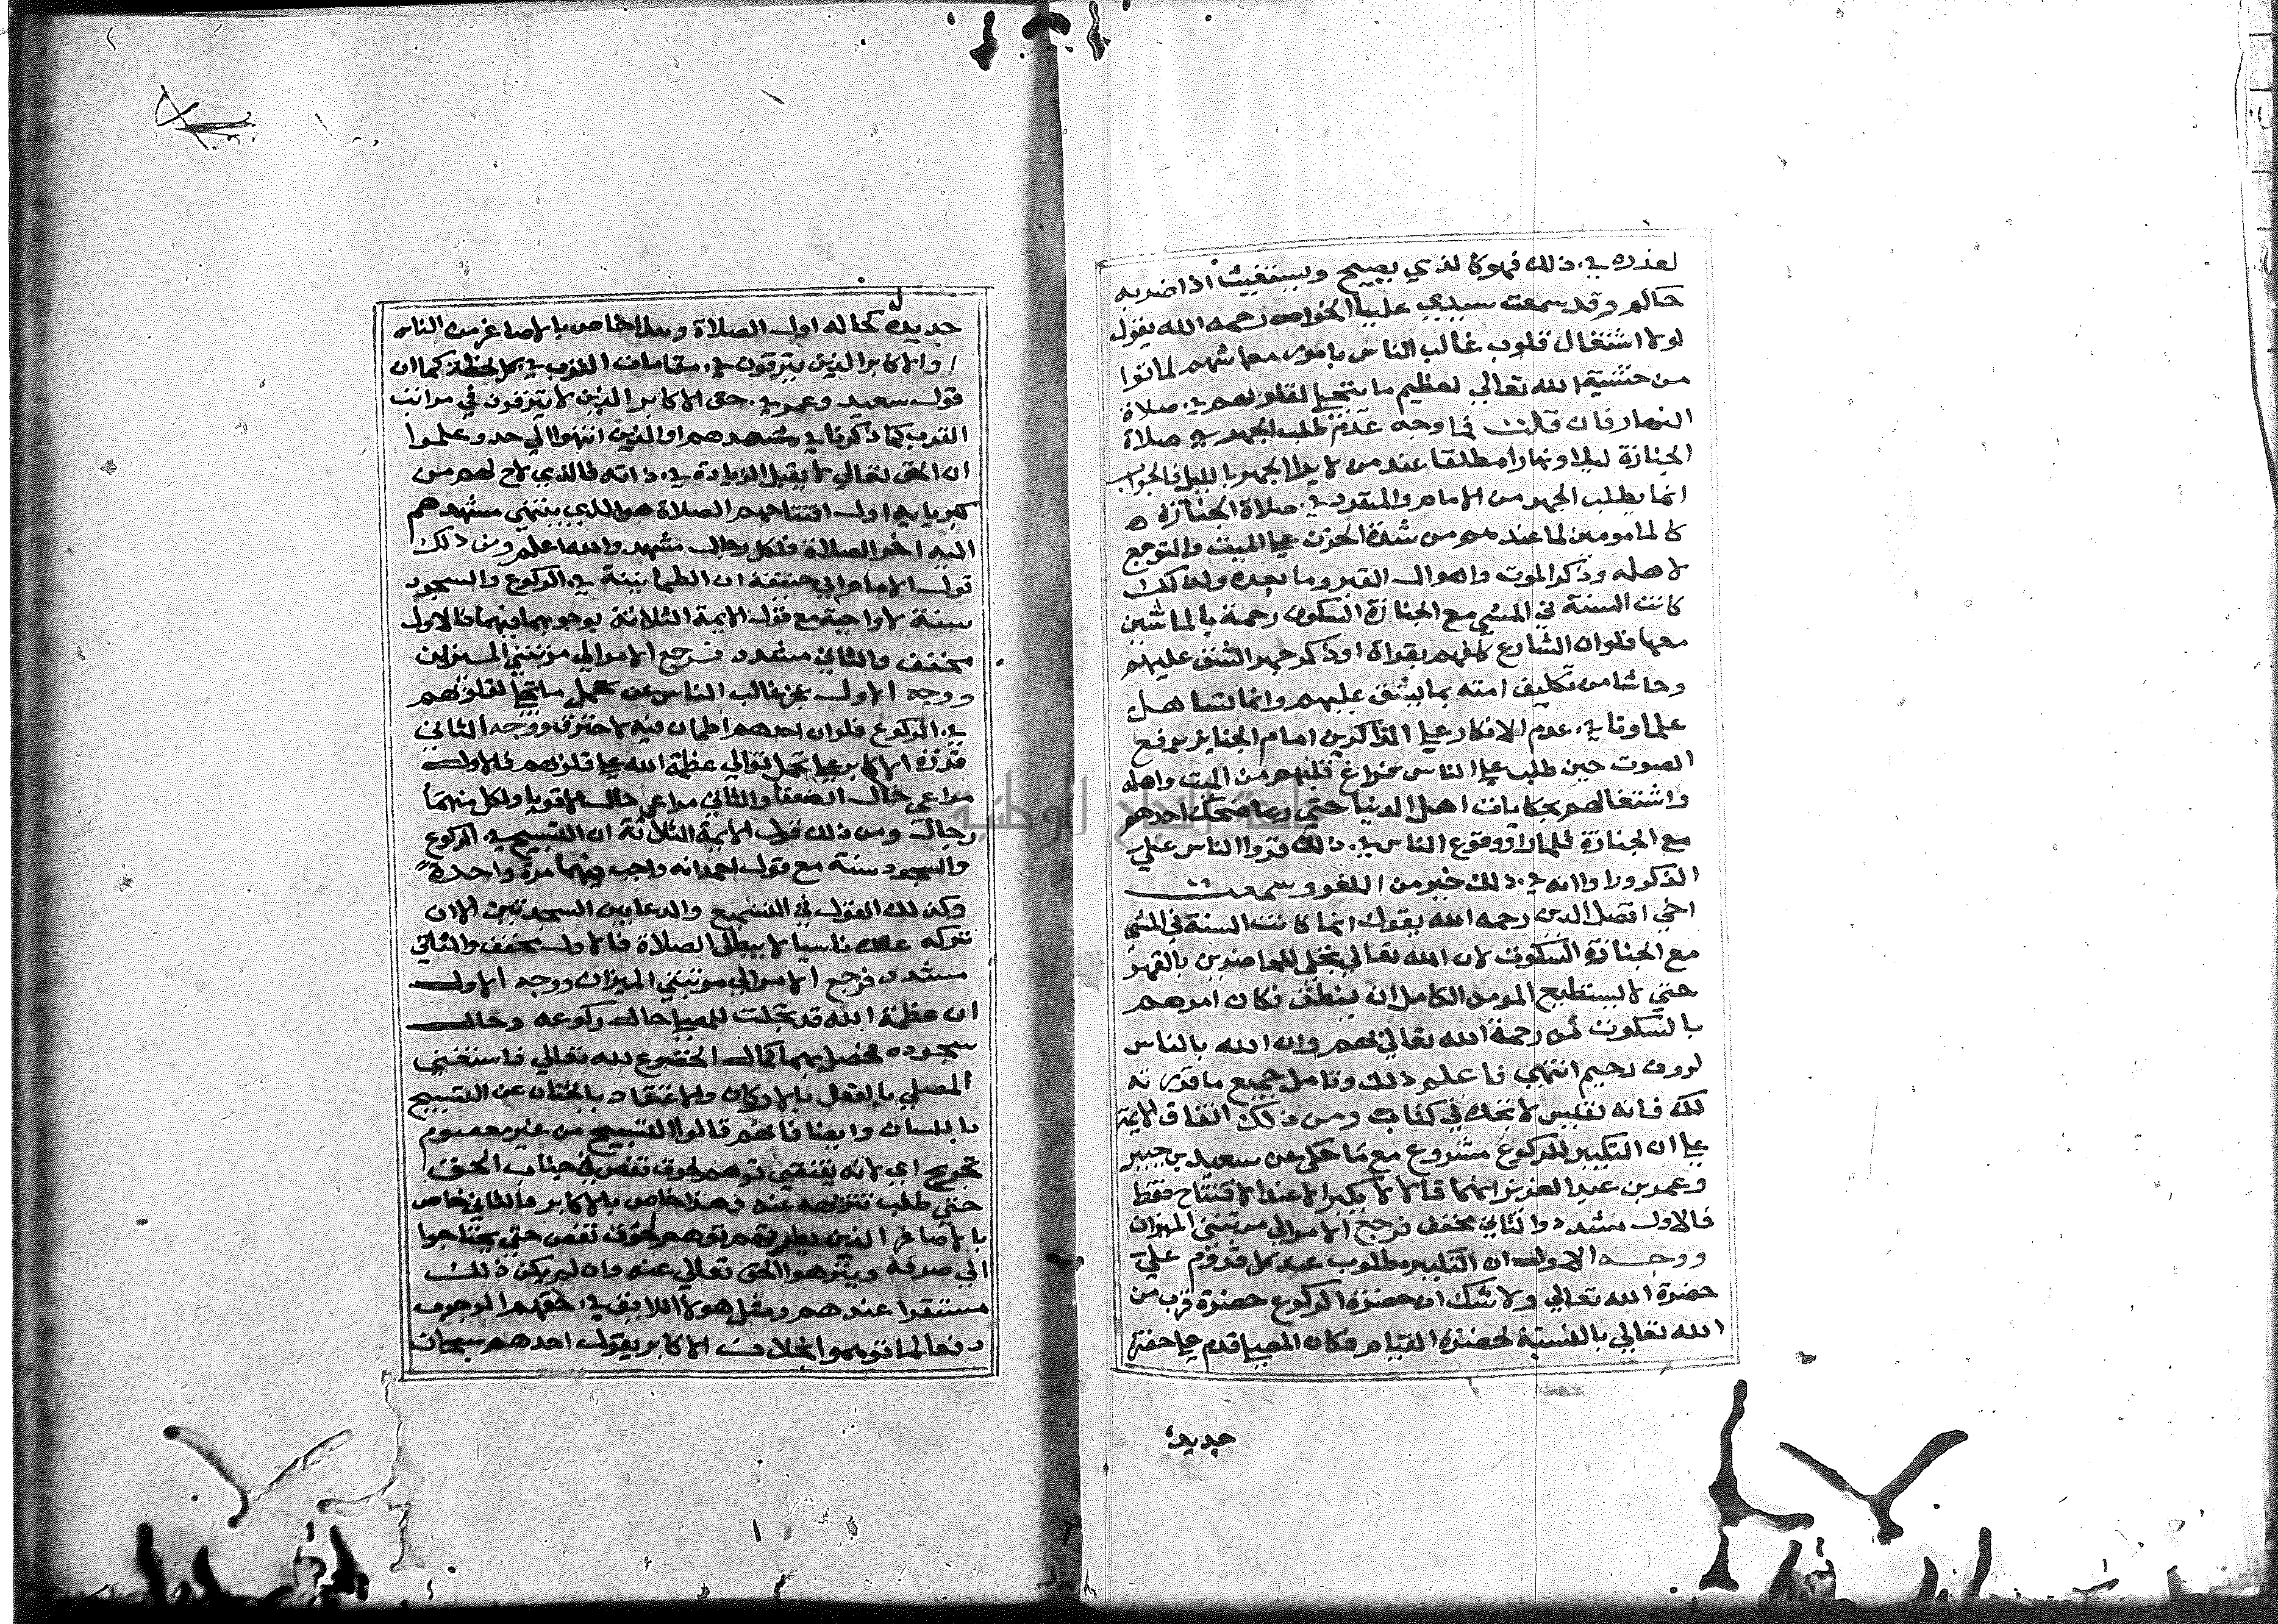 لعذره في ذلك فهو كالذي يصيح ويستغيث اذا ضربه
حاكم وقد سمعت سيدي عليا الخواص رحمه الله يقول
لولا اشتغال قلوب غالب الناس بامور معاشهم لماتوا
من خشية الله تعالي لعظيم ما يتجلي لقلوبهم في صلاة
النهار فان قلت فما وجه عدم طلب الجهر في صلاة
الجنازة ليلا ونهارا مطلقا عند من لا يرا الجهر بالليل فالجواب
انما يطلب الجهر من الامام والمنفرد في صلاة الجنازة
كالمامومين لما عندهم من شدة الحزن علي الميت والتوجع
لاهله وذكر الموت واهوال القبر وما بعده ولذلك
كانت السنة في المشي مع الجنازة السكوت رحمة بالماشين
معها فلو ان الشارع كلفهم بقراة او ذكر جهرا لشق عليهم
وحاشا من تكليف امته بما يشق عليهم وانما تساهل
علماونا في عدم الانكار علي الذاكرين امام الجنايز برفع
الصوت حين طلب علي الناس فراغ قلبهم من الميت واهله
واشتغالهم بحكايات اهل الدنيا حتي ربما ضحك احدهم
مع الجنازة فلما راوا وقوع الناس في ذلك قروا الناس علي
الذكر وراوا انه في ذلك خير من اللغو وسمعت
اخي افضل الدين رحمه الله يقول انما كانت السنة في المشي
مع الجنازة السكوت لان الله تعالي يتجلي للحاضرين بالقهر
حتي لا يستطيع المومن الكامل ان ينطق فكان امرهم
بالسكوت من رحمة الله تعالي بهم وان الله بالناس
لروف رحيم انتهي فاعلم ذلك وتامل جميع ما قررته
لك فانه نفيس لا تجده في كتاب ومن ذلك اتفاق الايمة
علي ان التكبير للركوع مشروع مع ما حكي عن سعيد بن جبير
وعمر بن عبد العزيز انهما قالا لا يكبر الا عند الافتتاح فقط
فالاول مشدد والثاني مخفف فرجع الامر الي مرتبتي الميزان
ووجه الاول ان التكبير مطلوب عند كل قدوم علي
حضرة الله تعالي ولا شك ان حضرة الركوع حضرة قرب من
الله تعالي بالنسبة لحضرة القيام فكان المصلي قدم علي حضرة
جديدة
جديدة كحاله اول الصلاة وهذا خاص بالاصاغر من الناس
والاكابر الذين يترقون في مقامات القرب في كل لحظة كما ان
قول سعيد وعمر في حق الاكابر الذين لا يترقون في مراتب
القرب كما ذكرنا في مشهدهم او الذين انتهوا الي حد وعلموا
ان الحق تعالي لا يقبل الزيادة في ذاته فالذي لاح لهم من
كبريايه اول افتتاحهم الصلاة هو الذي ينتهي مشهدهم
اليه اخر الصلاة فلكل رجال مشهد والله اعلم ومن ذلك
قول الامام ابي حنيفة ان الطمانينة في الركوع والسجود
سنة لا واجبة مع قول الايمة الثلاثة بوجوبهما فيهما فالاول
مخفف والثاني مشدد فرجع الامر الي مرتبتي الميزان
ووجه الاول عجز غالب الناس عن تحمل ما تجلي لقلوبهم
في الركوع فلو ان احدهم اطمان فيه لاحترق ووجه الثاني
قدرة الاكابر علي تحمل توالي عظمة الله علي قلوبهم فالاول
مراعي حال الضعفا والثاني مراعي حال الاقويا ولكل منهما
رجال ومن ذلك قول الايمة الثلاثة ان التسبيح في الركوع
والسجود سنة مع قول احمد انه واجب فيهما مرة واحدة
وكذلك القول في التسميع والدعا بين السجدتين الا ان
تركه عنده ناسيا لا يبطل الصلاة فالاول مخفف والثاني
مشدد فرجع الامر الي مرتبتي الميزان ووجه الاول
ان عظمة الله قد تجلت للمصلي حال ركوعه وحال
سجوده فحصل بهما كمال الخضوع لله تعالي فاستغني
المصلي بالفعل بالاركان والاعتقاد بالجنان عن التسبيح
باللسان وايضا فانهم قالوا التسبيح من غير معصوم
تجريح اي لانه يقتضي توهم لحوق نقص في جناب الحق
حتي طلب تنزيهه عنه فهذا خاص بالاكابر والثاني خاص
بالاصاغر الذين يطرقهم توهم لحوق نقص حتي يحتاجوا
الي صرفه وينزهوا الحق تعالي عنه وان لم يكن ذلك
مستقرا عندهم ومثل هولا اللايق في حقهم الوجوب
دفعا لما توهموا بخلاف الاكابر يقول احدهم سبحان